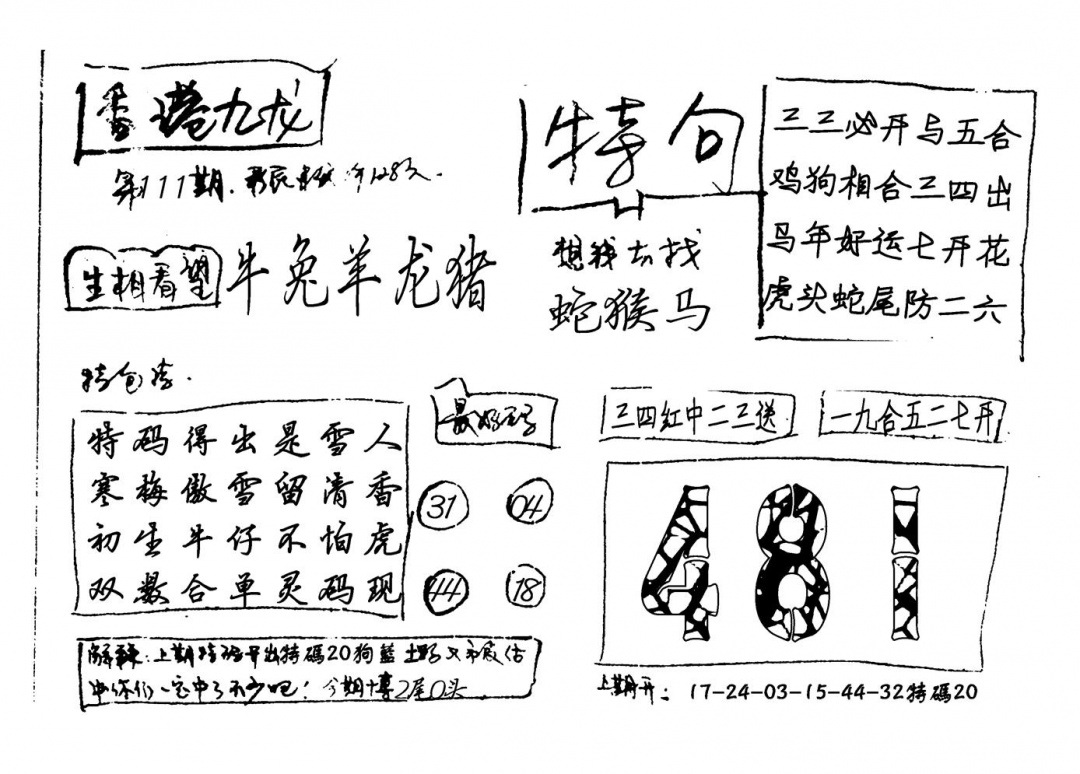 香港九龙
第111期.
生相看望
牛兔羊龙猪
特句
想我去找
蛇猴马
三三必开与五合
鸡狗相合三四出
马年好运七开花
虎头蛇尾防二六
特码得出是雪人
寒梅傲雪留清香
初生牛仔不怕虎
双数合单灵码现
31
04
44
18
三四红中二三送
一九合五二七开
481
上期开出特碼20狗藍
你们一定中了不少吧！今期博2尾0头
上期开：17-24-03-15-44-32特碼20